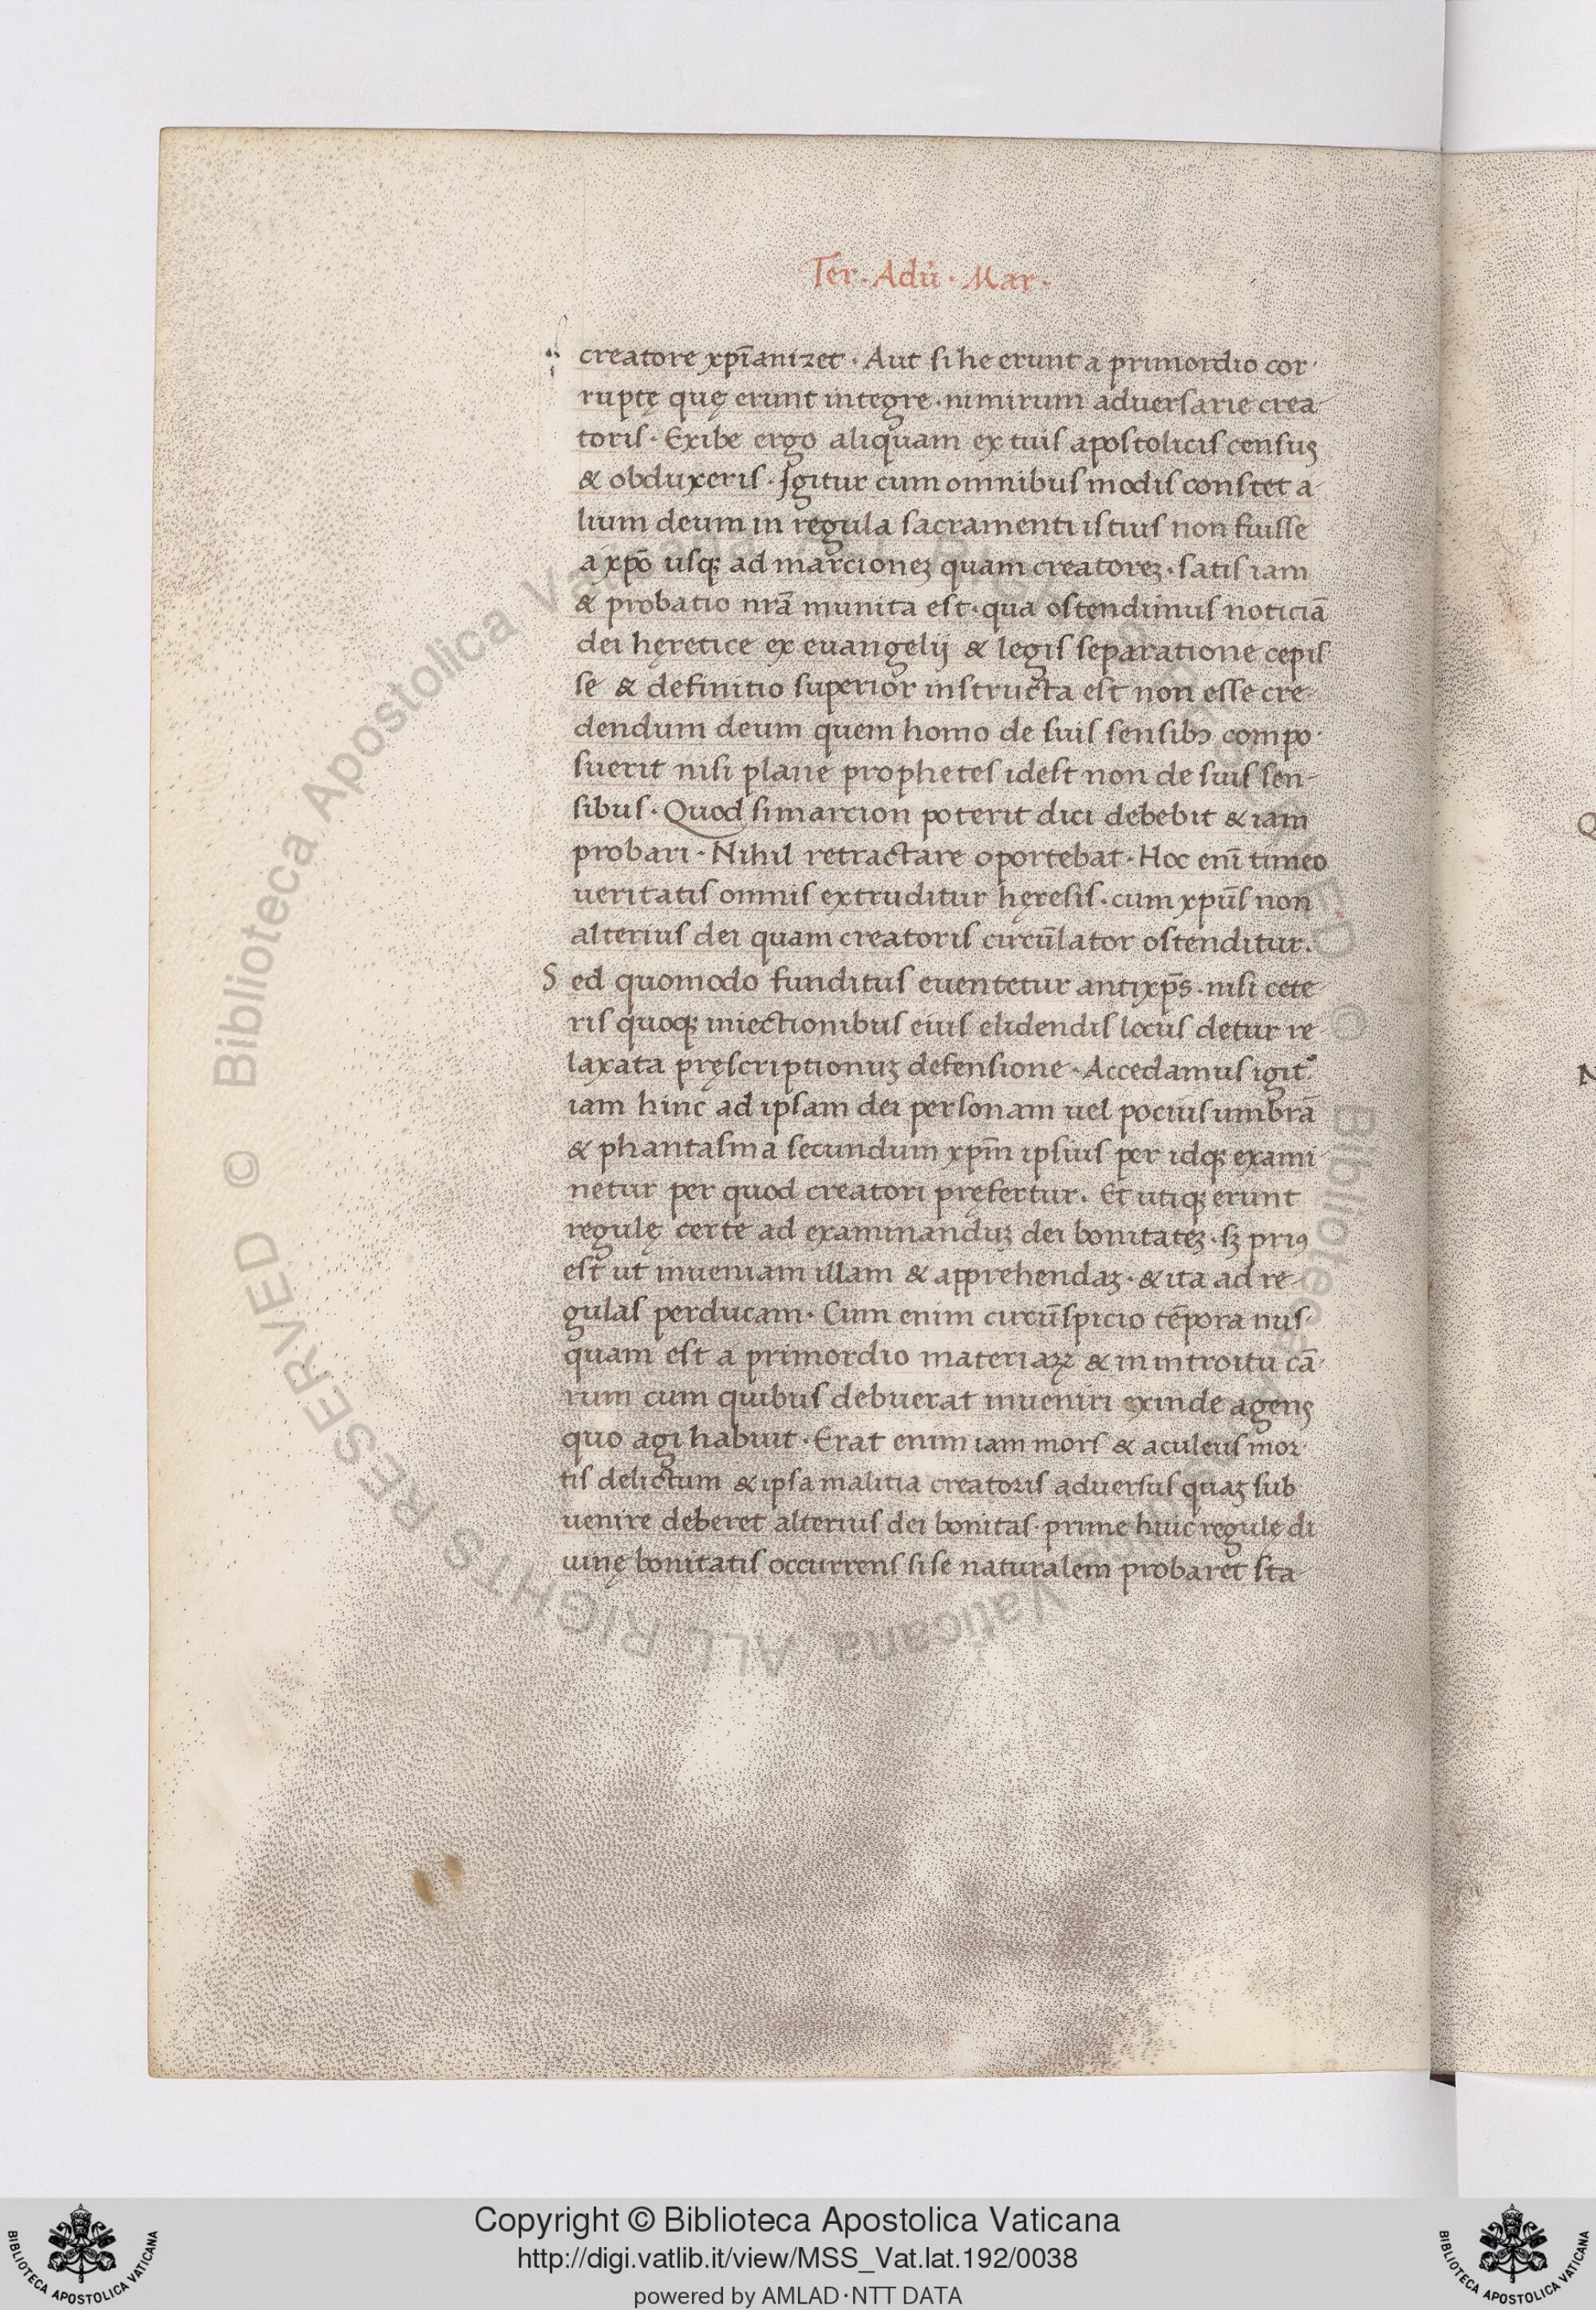 Ter. Adũ. Mar.
creatore xp̄ianizet · Aut si he erunt a primordio cor-
ruptę quę erunt integre · nimirum adversarie crea-
toris · Exibe ergo aliquam ex tuis apostolicis censuʒ
& obduxeris · Igitur cum omnibus modis constet a-
lium deum in regula sacramenti istius non fuisse
a xp̄o usqʒ ad marcioneʒ quam creatoreʒ · satis iam
& probatio nr̄a munita est · qua ostendimus noticiā
dei hęretice ex euangelij & legis separatione cepis
se & definitio superior instructa est non esse cre-
dendum deum quem homo de suis sensibꝫ compo-
suerit nisi plane prophetes idest non de suis sen-
sibus · Quod si marcion poterit dici debebit & iam
probari · Nihil retractare oportebat · Hoc enī timeo
ueritatis omnis extruditur hęresis · cum xpūs non
alterius dei quam creatoris circūlator ostenditur.
Sed quomodo funditus euentetur antixp̄s · nisi cete
ris quoqʒ iniectionibus eius elidendis locus detur re-
laxata pręscriptionuʒ defensione · Accedamus igit᷑
iam hinc ad ipsam dei personam uel pocius umbrā
& phantasma secundum xpm̄ ipsius per idqʒ exami
netur per quod creatori pręfertur. Et utiqʒ erunt
regulę certe ad examinanduʒ dei bonitateʒ · sʒ priꝰ
est ut inueniam illam & apprehendaʒ · & ita ad re-
gulas perducam · Cum enim circūspicio tēpora nus-
quam est a primordio materiaꝝ & in introitu cā-
rum cum quibus debuerat inueniri exinde agens
quo agi habuit · Erat enim iam mors & aculeus mor-
tis delictum & ipsa malitia creatoris adversus quaʒ sub
uenire deberet alterius dei bonitas · prime huic regulę di
uinę bonitatis occurrens si se naturalem probaret sta-
Copyright © Biblioteca Apostolica Vaticana
http://digi.vatlib.it/view/MSS_Vat.lat.192/0038
powered by AMLAD·NTT DATA